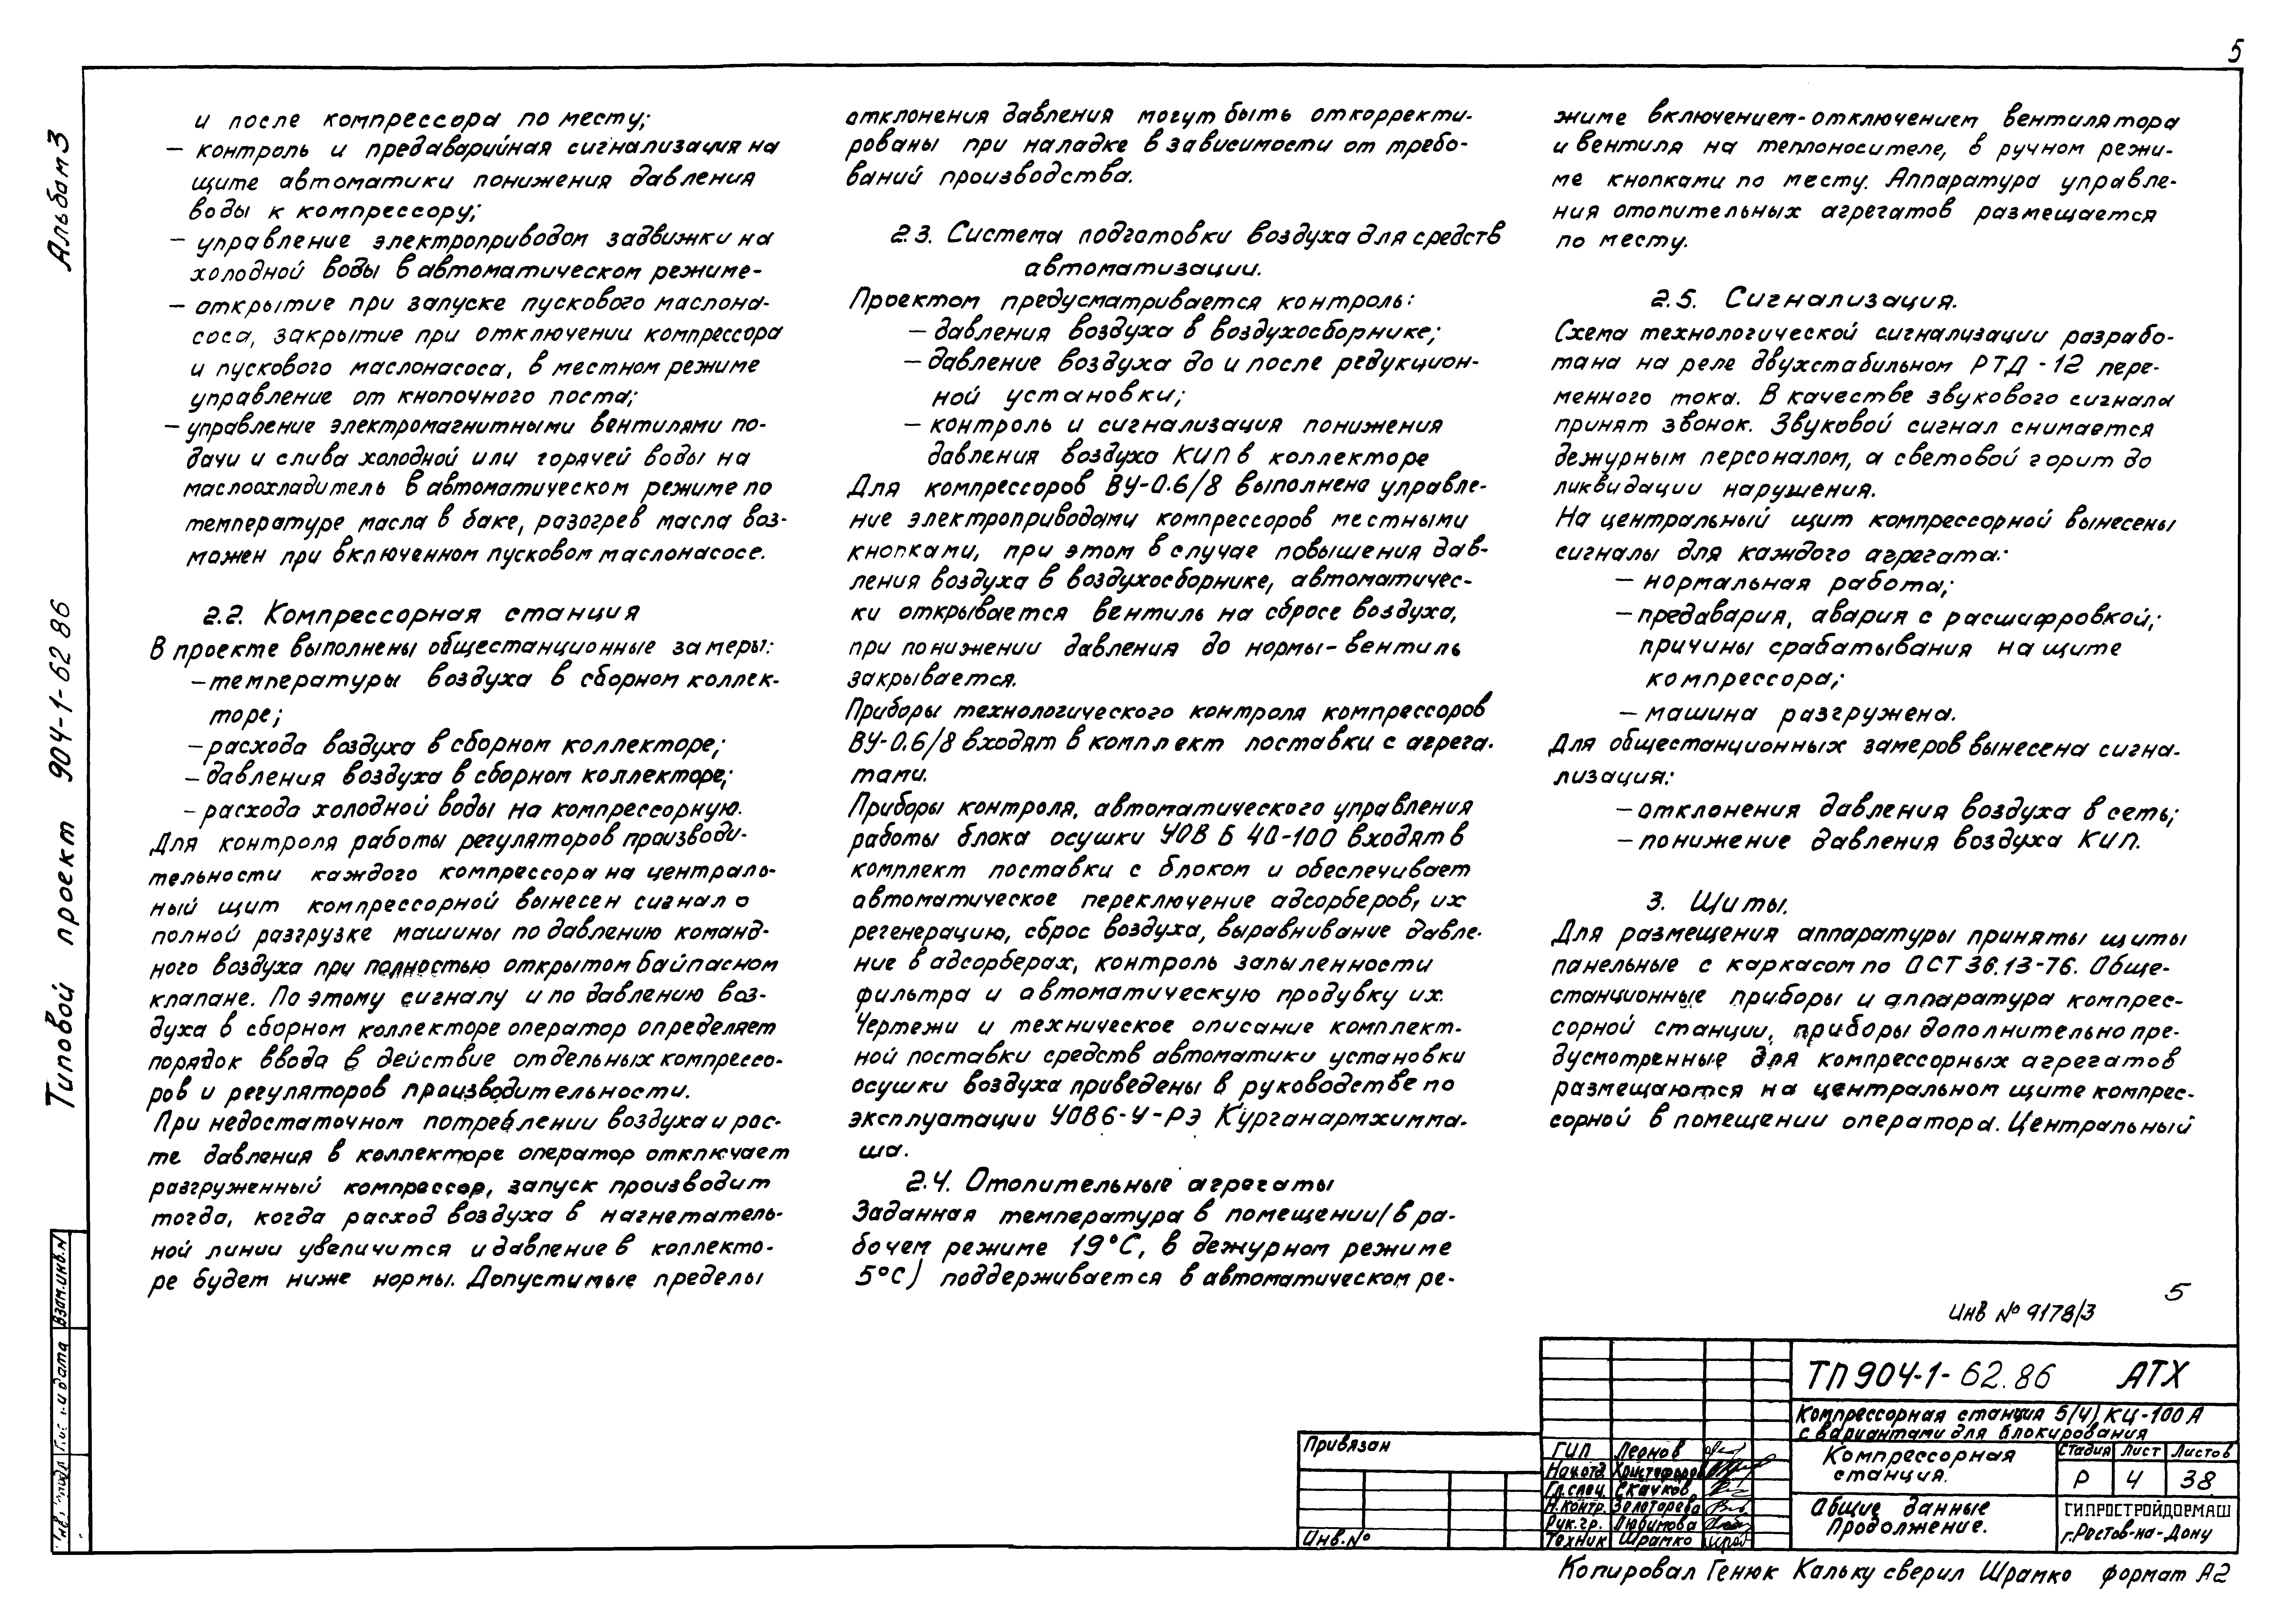 5
Альбом 3
Типовой проект 904-1-62 86
и после компрессора по месту;
— контроль и предаварийная сигнализация на
щите автоматики понижения давления
воды к компрессору;
— управление электроприводом задвижки на
холодной воды в автоматическом режиме-
— открытие при запуске пускового маслона-
соса, закрытие при отключении компрессора
и пускового маслонасоса, в местном режиме
управление от кнопочного поста;
— управление электромагнитными вентилями по-
дачи и слива холодной или горячей воды на
маслоохладитель в автоматическом режиме по
температуре масла в баке, разогрев масла воз-
можен при включенном пусковом маслонасосе.
2.2. Компрессорная станция
В проекте выполнены общестанционные замеры:
— температуры воздуха в сборном коллек-
торе;
— расхода воздуха в сборном коллекторе;
— давления воздуха в сборном коллекторе;
— расхода холодной воды на компрессорную.
Для контроля работы регуляторов производи-
тельности каждого компрессора на централь-
ный щит компрессорной вынесен сигнал о
полной разгрузке машины по давлению команд-
ного воздуха при полностью открытом байпасном
клапане. По этому сигналу и по давлению воз-
духа в сборном коллекторе оператор определяет
порядок ввода в действие отдельных компрессо-
ров и регуляторов производительности.
При недостаточном потреблении воздуха и рос-
те давления в коллекторе оператор отключает
разгруженный компрессор, запуск производит
тогда, когда расход воздуха в нагнетатель-
ной линии увеличится и давление в коллекто-
ре будет ниже нормы. Допустимые пределы
отклонения давления могут быть откорректи-
рованы при наладке в зависимости от требо-
ваний производства.
2.3. Система подготовки воздуха для средств
автоматизации.
Проектом предусматривается контроль:
— давления воздуха в воздухосборнике;
— давление воздуха до и после редукцион-
ной установки;
— контроль и сигнализация понижения
давления воздуха КИП в коллекторе
Для компрессоров ВУ-0.6/8 выполнено управле-
ние электроприводами компрессоров местными
кнопками, при этом в случае повышения дав-
ления воздуха в воздухосборнике, автоматичес-
ки открывается вентиль на сбросе воздуха,
при понижении давления до нормы-вентиль
закрывается.
Приборы технологического контроля компрессоров
ВУ-0.6/8 входят в комплект поставки с агрега-
тами.
Приборы контроля, автоматического управления
работы блока осушки УОВ Б 40-100 входят в
комплект поставки с блоком и обеспечивает
автоматическое переключение адсорберов, их
регенерацию, сброс воздуха, выравнивание давле-
ние в адсорберах, контроль запыленности
фильтра и автоматическую продувку их.
Чертежи и техническое описание комплект-
ной поставки средств автоматики установки
осушки воздуха приведены в руководстве по
эксплуатации УОВБ-У-РЭ Курганармхимма-
ша.
2.4. Отопительные агрегаты
Заданная температура в помещении/в ра-
бочем режиме 19°С, в дежурном режиме
5°С) поддерживается в автоматическом ре-
жиме включением-отключением вентилятора
и вентиля на теплоносителе, в ручном режи-
ме кнопками по месту. Аппаратура управле-
ния отопительных агрегатов размещается
по месту.
2.5. Сигнализация.
Схема технологической сигнализации разрабо-
тана на реле двухстабильном РТД-12 пере-
менного тока. В качестве звукового сигнала
принят звонок. Звуковой сигнал снимается
дежурным персоналом, а световой горит до
ликвидации нарушения.
На центральный щит компрессорной вынесены
сигналы для каждого агрегата:
— нормальная работа;
— предавария, авария с расшифровкой;
причины срабатывания на щите
компрессора;
— машина разгружена.
Для общестанционных замеров вынесена сигна-
лизация:
— отклонения давления воздуха в сеть;
— понижение давления воздуха КИП.
3. Щиты.
Для размещения аппаратуры приняты щиты
панельные с каркасом по ОСТ 36.13-76. Обще-
станционные приборы и аппаратура компрес-
сорной станции, приборы дополнительно пре-
дусмотренные для компрессорных агрегатов
размещаются на центральном щите компрес-
сорной в помещении оператора. Центральный
5
Инв № 9178/3
ТП 904-1-62.86 АТХ
Компрессорная станция 5/4/КЦ-100А
с вариантами для блокирования
Компрессорная
станция.
Стадия Лист Листов
Р 4 38
Общие данные
Продолжение.
ГИПРОСТРОЙДОРМАШ
г.Ростов-на-Дону
ГИП Леонов
Нач.отд Христофоров
Гл.спец. Скачков
Н.контр. Золотарева
Рук.гр. Любимова
Техник Шрамко
Привязан
Инв.№
Взам.инв.N
и дата
Инв. подл
Копировал Генюк Кальку сверил Шрамко формат А2